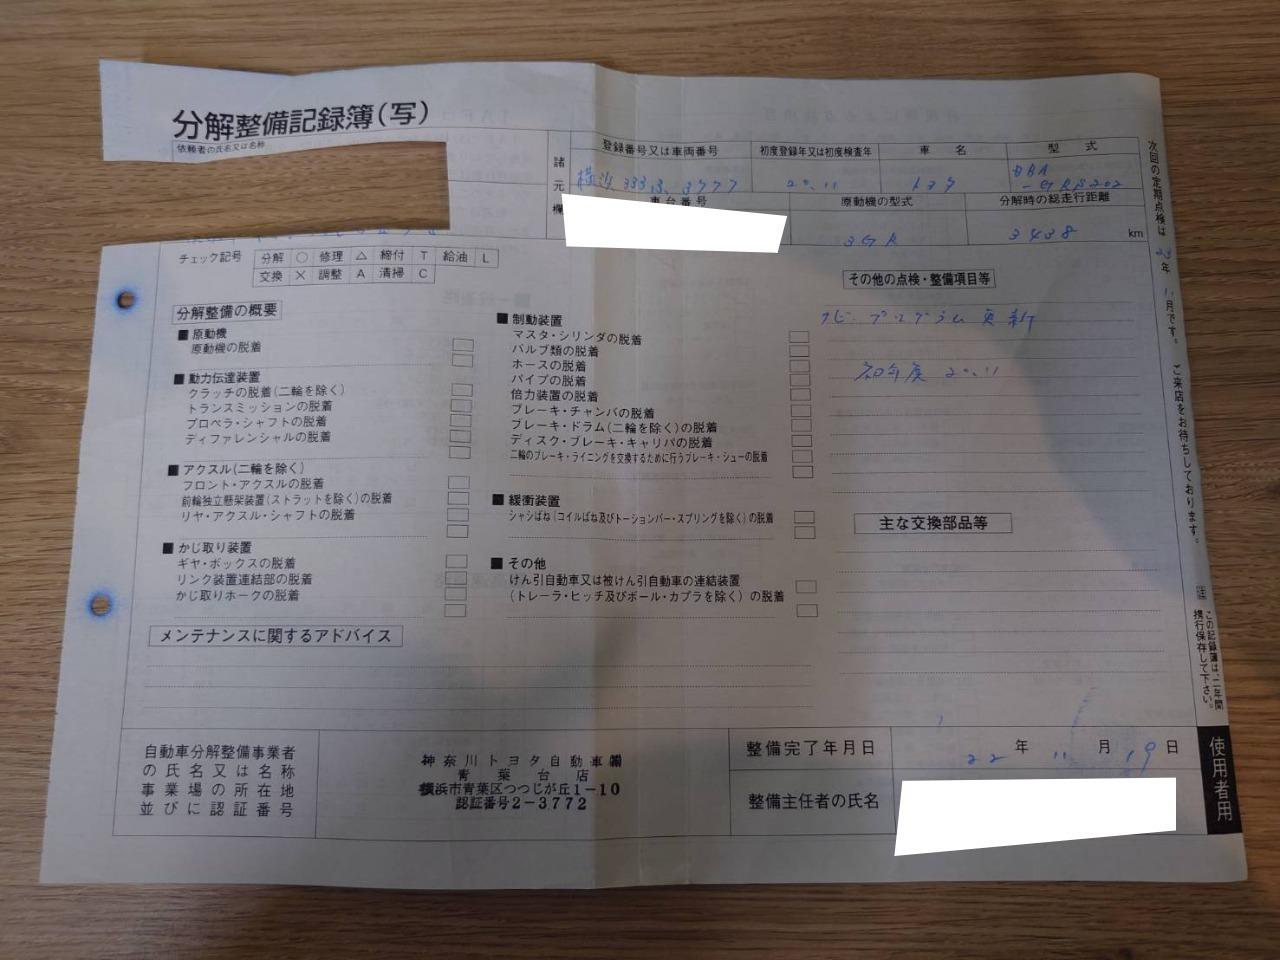 分解整備記録簿(写)
依頼者の氏名又は名称
諸元欄
登録番号又は車両番号
初度登録年又は初度検査年
車名
型式
横浜 333 ほ 3777
20.11
トヨタ
DBA-GRS202
車台番号
原動機の型式
分解時の総走行距離
3GR
3438 km
チェック記号 分解 ○ 修理 △ 締付 T 給油 L
交換 × 調整 A 清掃 C
分解整備の概要
■ 原動機
原動機の脱着
■ 動力伝達装置
クラッチの脱着(二輪を除く)
トランスミッションの脱着
プロペラ・シャフトの脱着
ディファレンシャルの脱着
■ アクスル(二輪を除く)
フロント・アクスルの脱着
前輪独立懸架装置(ストラットを除く)の脱着
リヤ・アクスル・シャフトの脱着
■ かじ取り装置
ギヤ・ボックスの脱着
リンク装置連結部の脱着
かじ取りホークの脱着
■ 制動装置
マスタ・シリンダの脱着
バルブ類の脱着
ホースの脱着
パイプの脱着
倍力装置の脱着
ブレーキ・チャンバの脱着
ブレーキ・ドラム(二輪を除く)の脱着
ディスク・ブレーキ・キャリパの脱着
二輪のブレーキ・ライニングを交換するために行うブレーキ・シューの脱着
■ 緩衝装置
シャシばね(コイルばね及びトーションバー・スプリングを除く)の脱着
■ その他
けん引自動車又は被けん引自動車の連結装置
(トレーラ・ヒッチ及びボール・カプラを除く)の脱着
その他の点検・整備項目等
ナビ プログラム 更新
初年度 20.11
主な交換部品等
メンテナンスに関するアドバイス
自動車分解整備事業者
の氏名又は名称
事業場の所在地
並びに認証番号
神奈川トヨタ自動車㈱
青葉台店
横浜市青葉区つつじが丘1-10
認証番号2-3772
整備完了年月日
22 年 11 月 19 日
整備主任者の氏名
次回の定期点検は 23 年 11 月です。ご来店をお待ちしております。
注 この記録簿は、二年間
携行保存して下さい。
使用者用